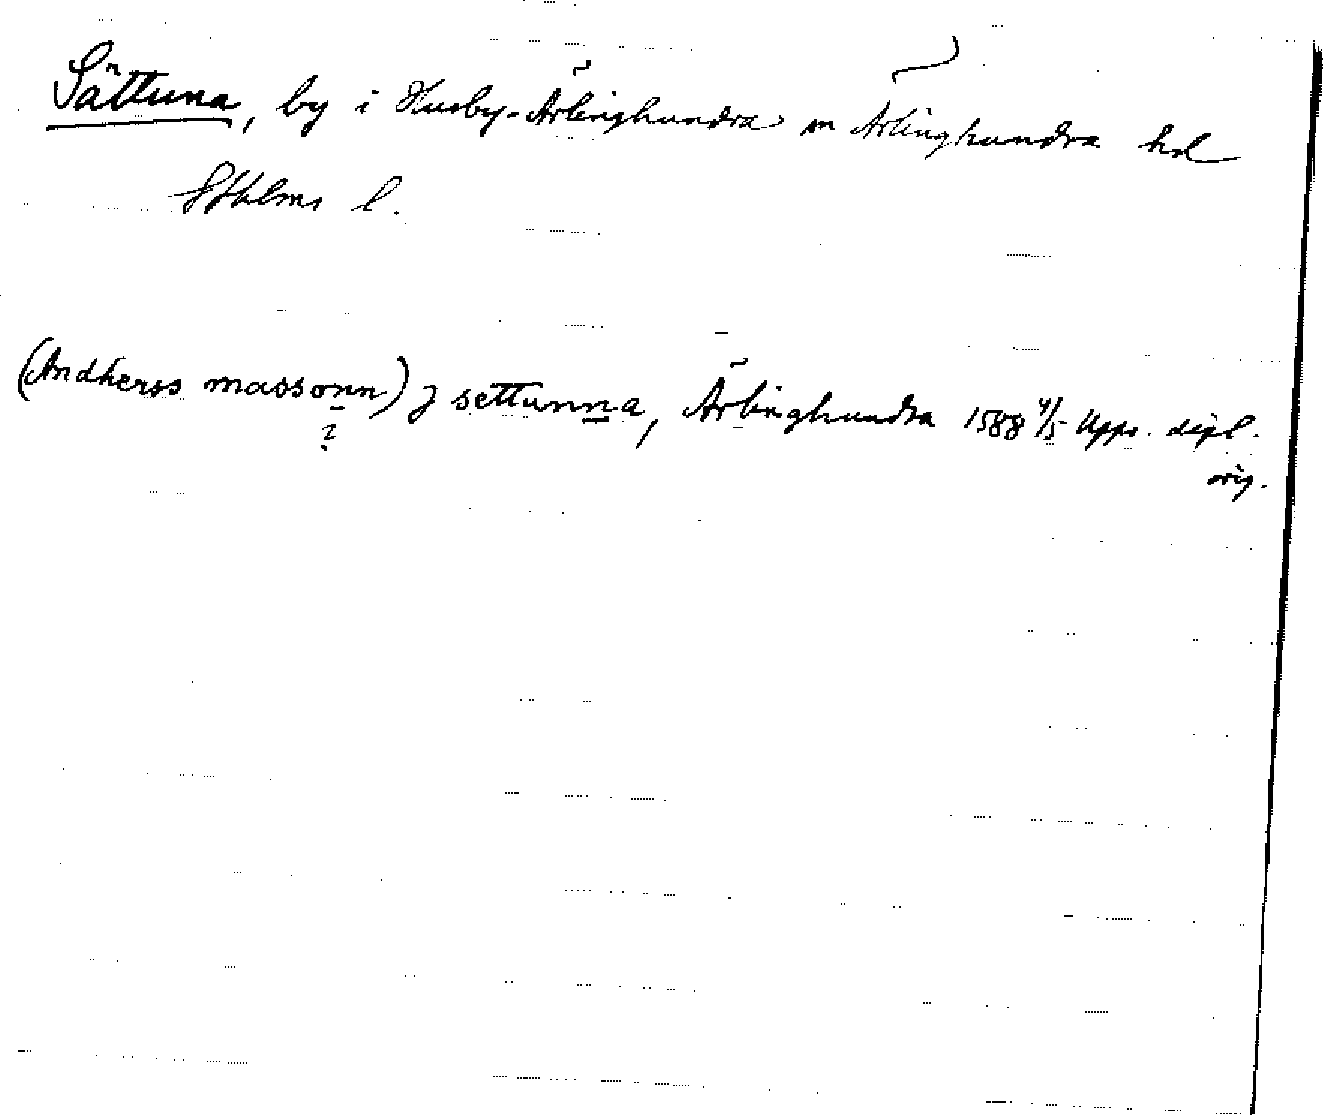 Sättuna, by i Husby-Ärlinghundra sn Ärlinghundra hd
Sthlms l.
(Andherss massonn) j settunna, Ärlinghundra 1588 4/5 Upps. dipl.
?
orig.